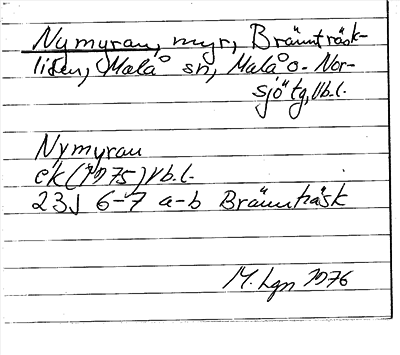 Nymyran, myr, Brännträsk-
liden, Malå sn, Malå o. Nor-
sjö tg, Vb.l.
Nymyran
ek (1975) Vb.l.
23J 6-7 a-b Brännträsk
M. Lgn 1976